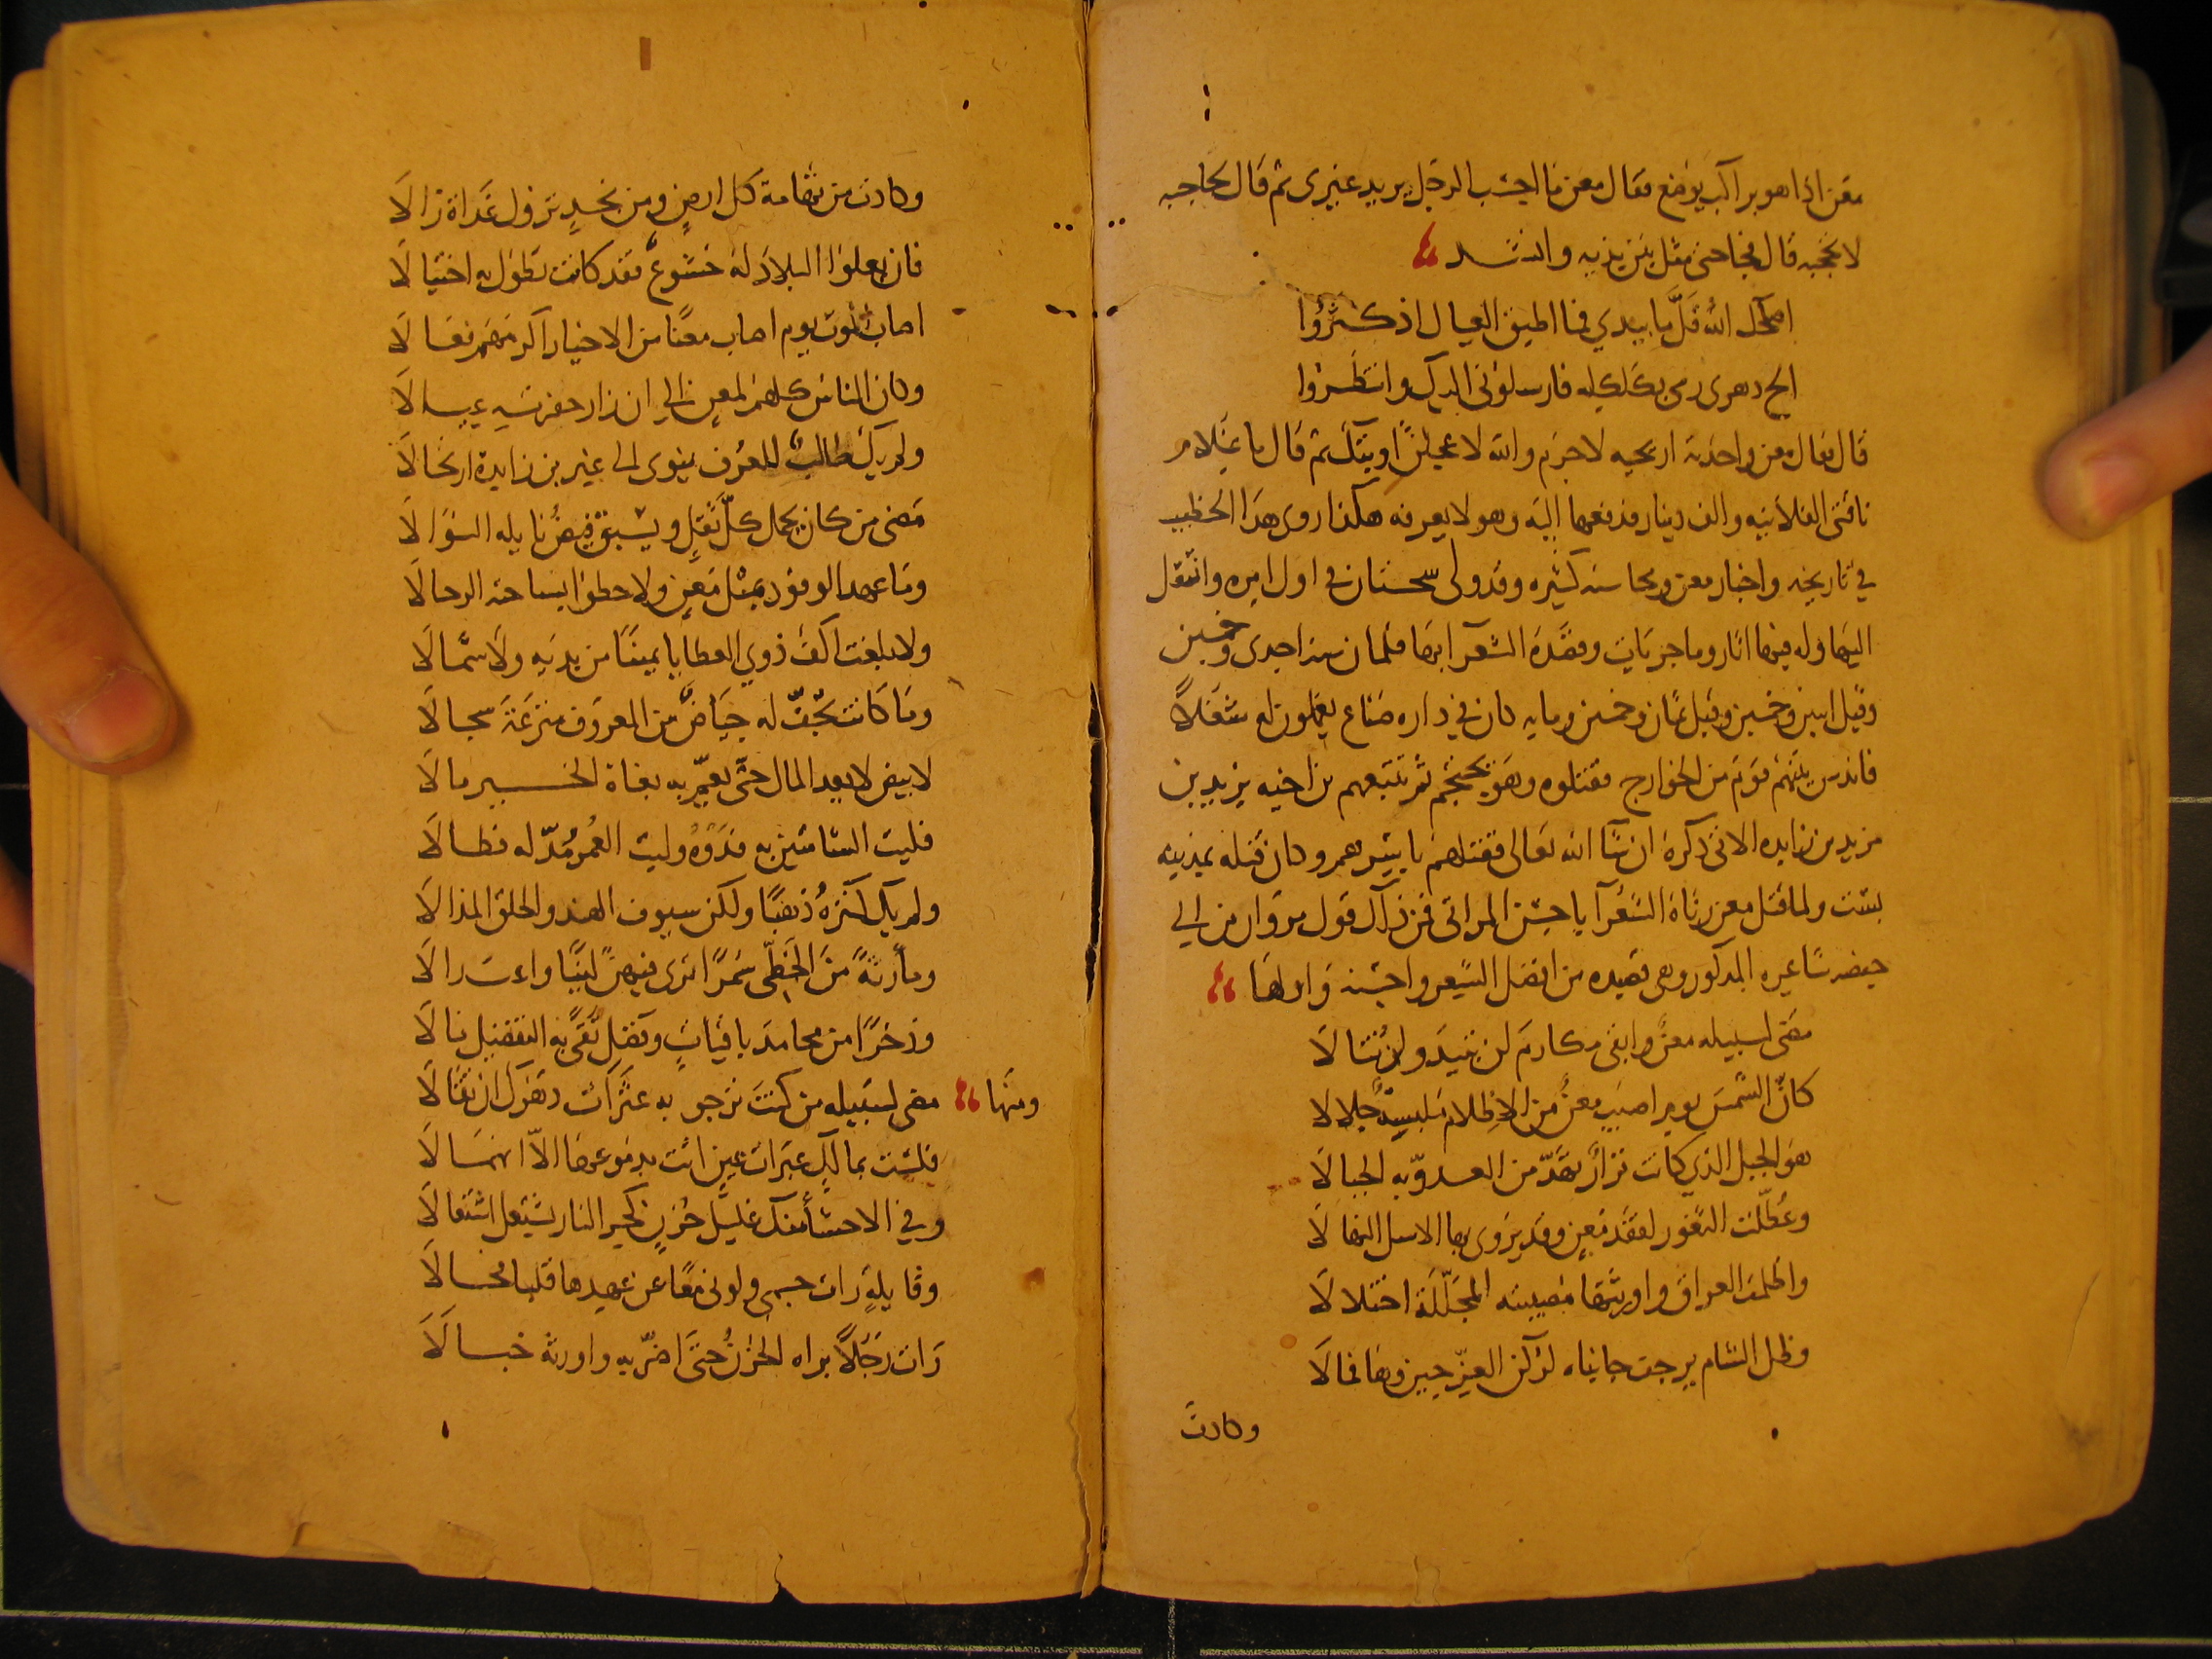 معن اذا هو براكب يوضع فقال معن ما احسب الرجل يريد غيرى ثم قال لحاجبه
لا تحجبه قال فجا حتى مثل بين يديه وانشد
اصلحك الله قل ما بيدي فما اطيق العيال اذ كثروا
الح دهرى رمى بكلكله فارسلونى اليك وانتظروا
قال فقال معن واخذته اريحيه لا جرم والله لا عجلن اوبتك ثم قال يا غلام
ناقتى الفلانيه والف دينار فدفعها اليه وهو لا يعرفه هكذا روى هذا الخطيب
في تاريخه واخبار معن ومحاسنه كثيره وقد ولى سجستان في اول امره وانتقل
اليها وله فيها اثار وماجريات وقصده الشعرآ بها فلما كان سنة احدى وخمسين
وقيل اثنين وخمسين وقيل ثمان وخمسين ومايه كان في داره صناع يعملون له شغلاً
فاندس بينهم قوم من الخوارج فقتلوه وهو يحتجم ثم تتبعهم بن اخيه يزيد بن
مزيد بن زايده الاتى ذكره ان شآ الله تعالى فقتلهم باسرهم وكان قتله بمدينه
بست ولما قتل معن رثاه الشعرآ باحسن المراثى فمن ذلك قول مروان بن ابي
حفصه شاعره المذكور وهى قصيده من افضل الشعر واحسنه واولها
مضى لسبيله معن وابقى مكارم لن تبيد ولن تنالا
كان الشمس يوم اصيب معن من الاظلام ملبسة جلالا
هو الجبل الذي كانت نزار تهد من العدو به الجبالا
وعطلت الثغور لفقد معن وقد يروى بها الاسل النهالا
واظلمت العراق واورثتها مصيبته المجللة اختلالا
وظل الشام يرجف جانباه لركن العز حين وها فمالا
وكادت
وكادت من تهامة كل ارض ومن نجد تزول غداة زالا
فان يعلوا البلاد له خشوع فقد كانت تطول به اختيالا
اصاب الموت يوم اصاب معنا من الاخيار اكرمهم فعالا
وكان الناس كلهم لمعن الى ان زار حفرته عيالا
ولم يك طالب للعرف ينوى الى غير بن زايدة ارتحالا
مضى من كان يحمل كل ثقل ويسبق فيض نايله السؤالا
وما عمد الوفود بمثل معن ولا حطوا بساحته الرحالا
ولا بلغت اكف ذوي العطايا يمينا من يديه ولا شمالا
وما كانت تجف له حياض من المعروف منزعة سجالا
لابيض لا يعد المال حتى يعم به بغاة الخير مالا
فليت الشامتين به فدوه وليت العمر مد له فطالا
ولم يك كنزه ذهبا ولكن سيوف الهند والحلق المذالا
ومأرنة من الخطى سمرا ترى فيهن لينا واعتدالا
وذخرا من محامد باقيات وفضل تقى به التفضيل نالا
ومنها مضى لسبيله من كنت ترجو به عثرات دهرك ان تقالا
فلست بمالك عبرات عين ابت بدموعها الا انهمالا
وفي الاحشأ منك غليل حزن كحر النار يشتعل اشتعالا
وقايلة رات جسمى ولونى معا عن عهدها قلبا فحالا
رات رجلا براه الحزن حتى اضر به واورثه خبالا